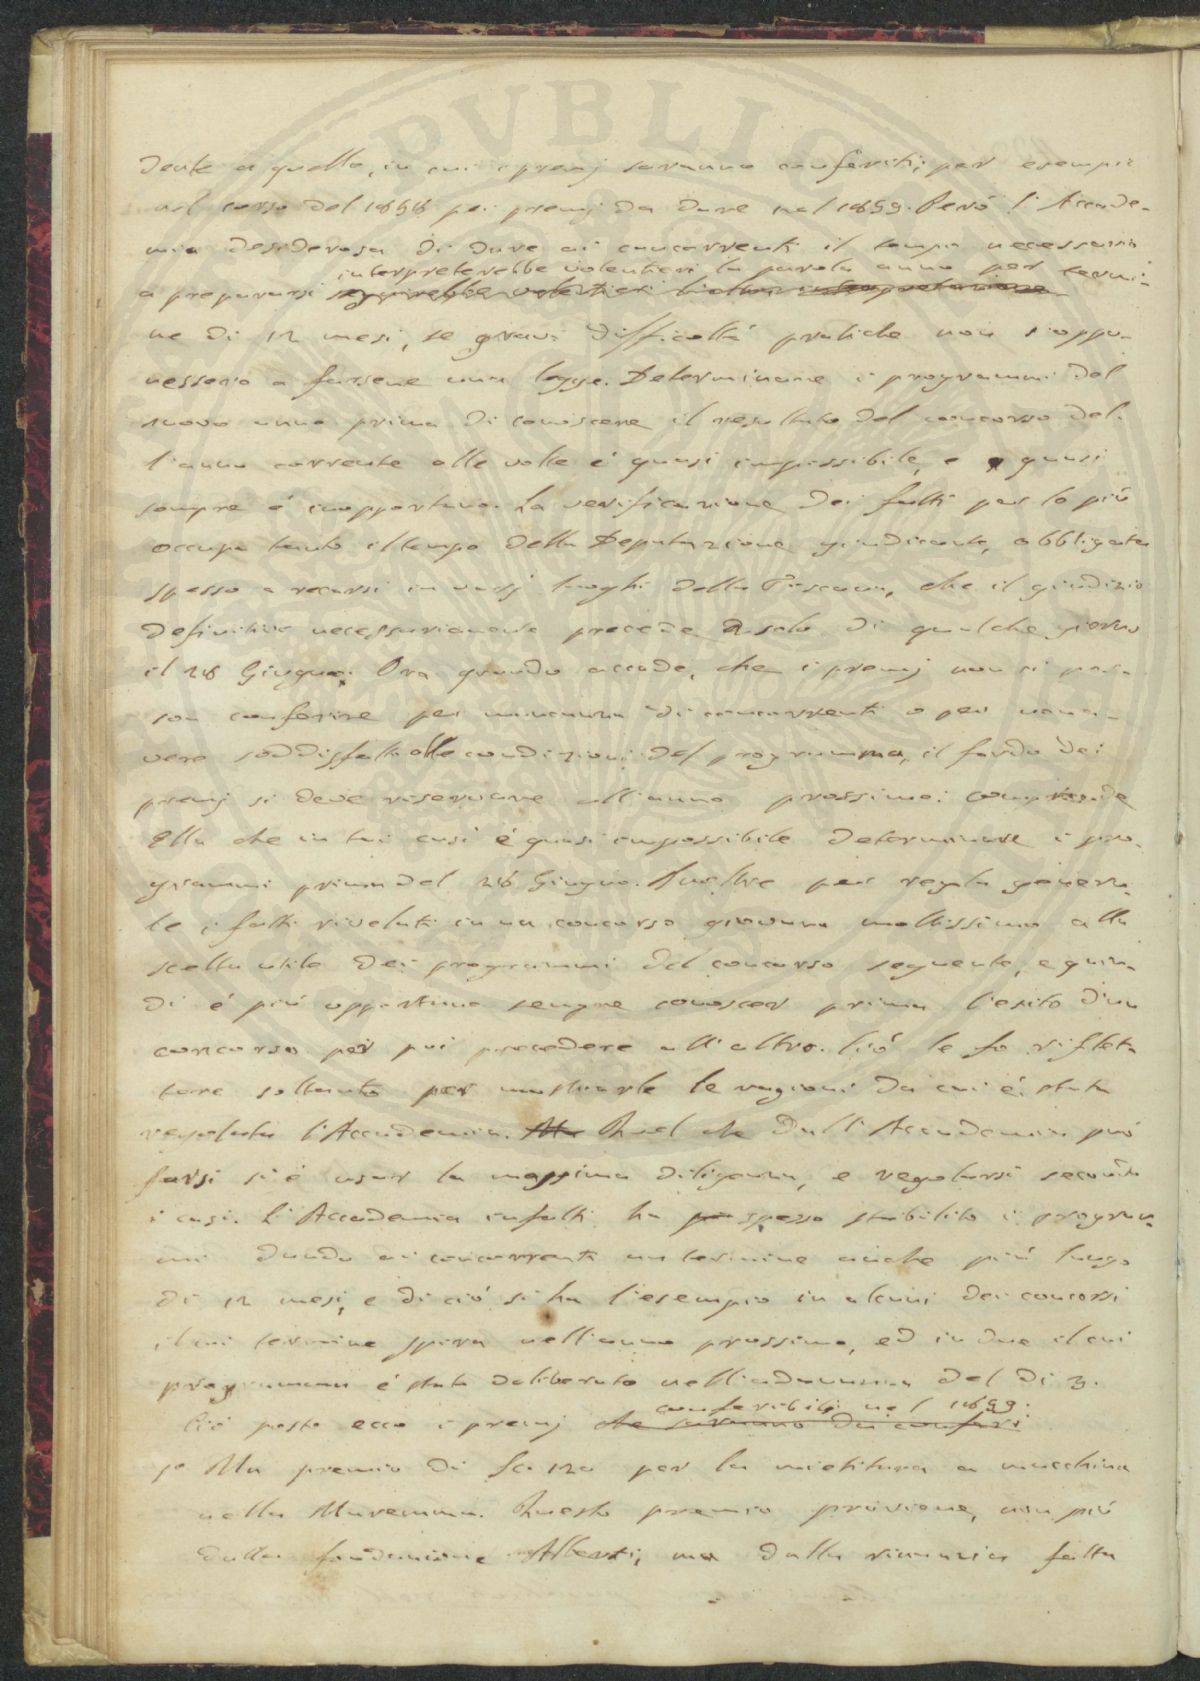 dente a quello, in cui i premj saranno conferiti; per esempio
nel corso del 1858 pei premj da dare nel 1859. Però l'Accade-
mia desiderosa di dare ai concorrenti il tempo necessario
interpreterebbe volentieri la parola anno per termi-
a prepararsi seguirebbe volentieri l'altra interpretazione
ne di 12 mesi, se gravi difficoltà pratiche non s'oppo-
nessero a farsene una legge. Determinare i programmi del
nuovo anno prima di conoscere il resultato del concorso del-
l'anno corrente alle volte è quasi impossibile, e quasi
sempre è inopportuno. La verificazione dei fatti per lo più
occupa tanto il tempo della Deputazione giudicante, obbligata
spesso a recarsi in varj luoghi della Toscana, che il giudizio
definitivo necessariamente precede solo di qualche giorno
il 28 Giugno. Ora quando accade, che i premj non si pos-
son conferire per mancanza di concorrenti o per non a-
vere soddisfatto alle condizioni del programma, il fondo dei
premj si deve riservare all'anno prossimo: comprende
Ella che in tai casi è quasi impossibile determinare i pro-
grammi prima del 28 Giugno. Inoltre per regola genera-
le i fatti rivelati in un concorso giovano moltissimo alla
scelta utile dei programmi del concorso seguente, e quin-
di è più opportuno sempre conoscer prima l'esito d'un
concorso per poi procedere all'altro. Ciò le fo riflet-
tere soltanto per mostrarle le ragioni da cui è stata
regolata l'Accademia. Ma Quel che dall'Accademia può
farsi si è usar la massima diligenza, e regolarsi secondo
i casi. L'Accademia infatti ha spesso stabilito i program-
mi dando ai concorrenti un termine anche più lungo
di 12 mesi, e di ciò si ha l'esempio in alcuni dei concorsi
il cui termine spira nell'anno prossimo, ed in due il cui
programma è stato deliberato nell'adunanza del dì 3.
conferibili nel 1859.
Ciò posto ecco i premj che saranno da conferi
1º Un premio di Sc. 120 per la mietitura a macchina
nella Maremma. Questo premio proviene, non più
dalla fondazione Alberti, ma dalla rinunzia fatta